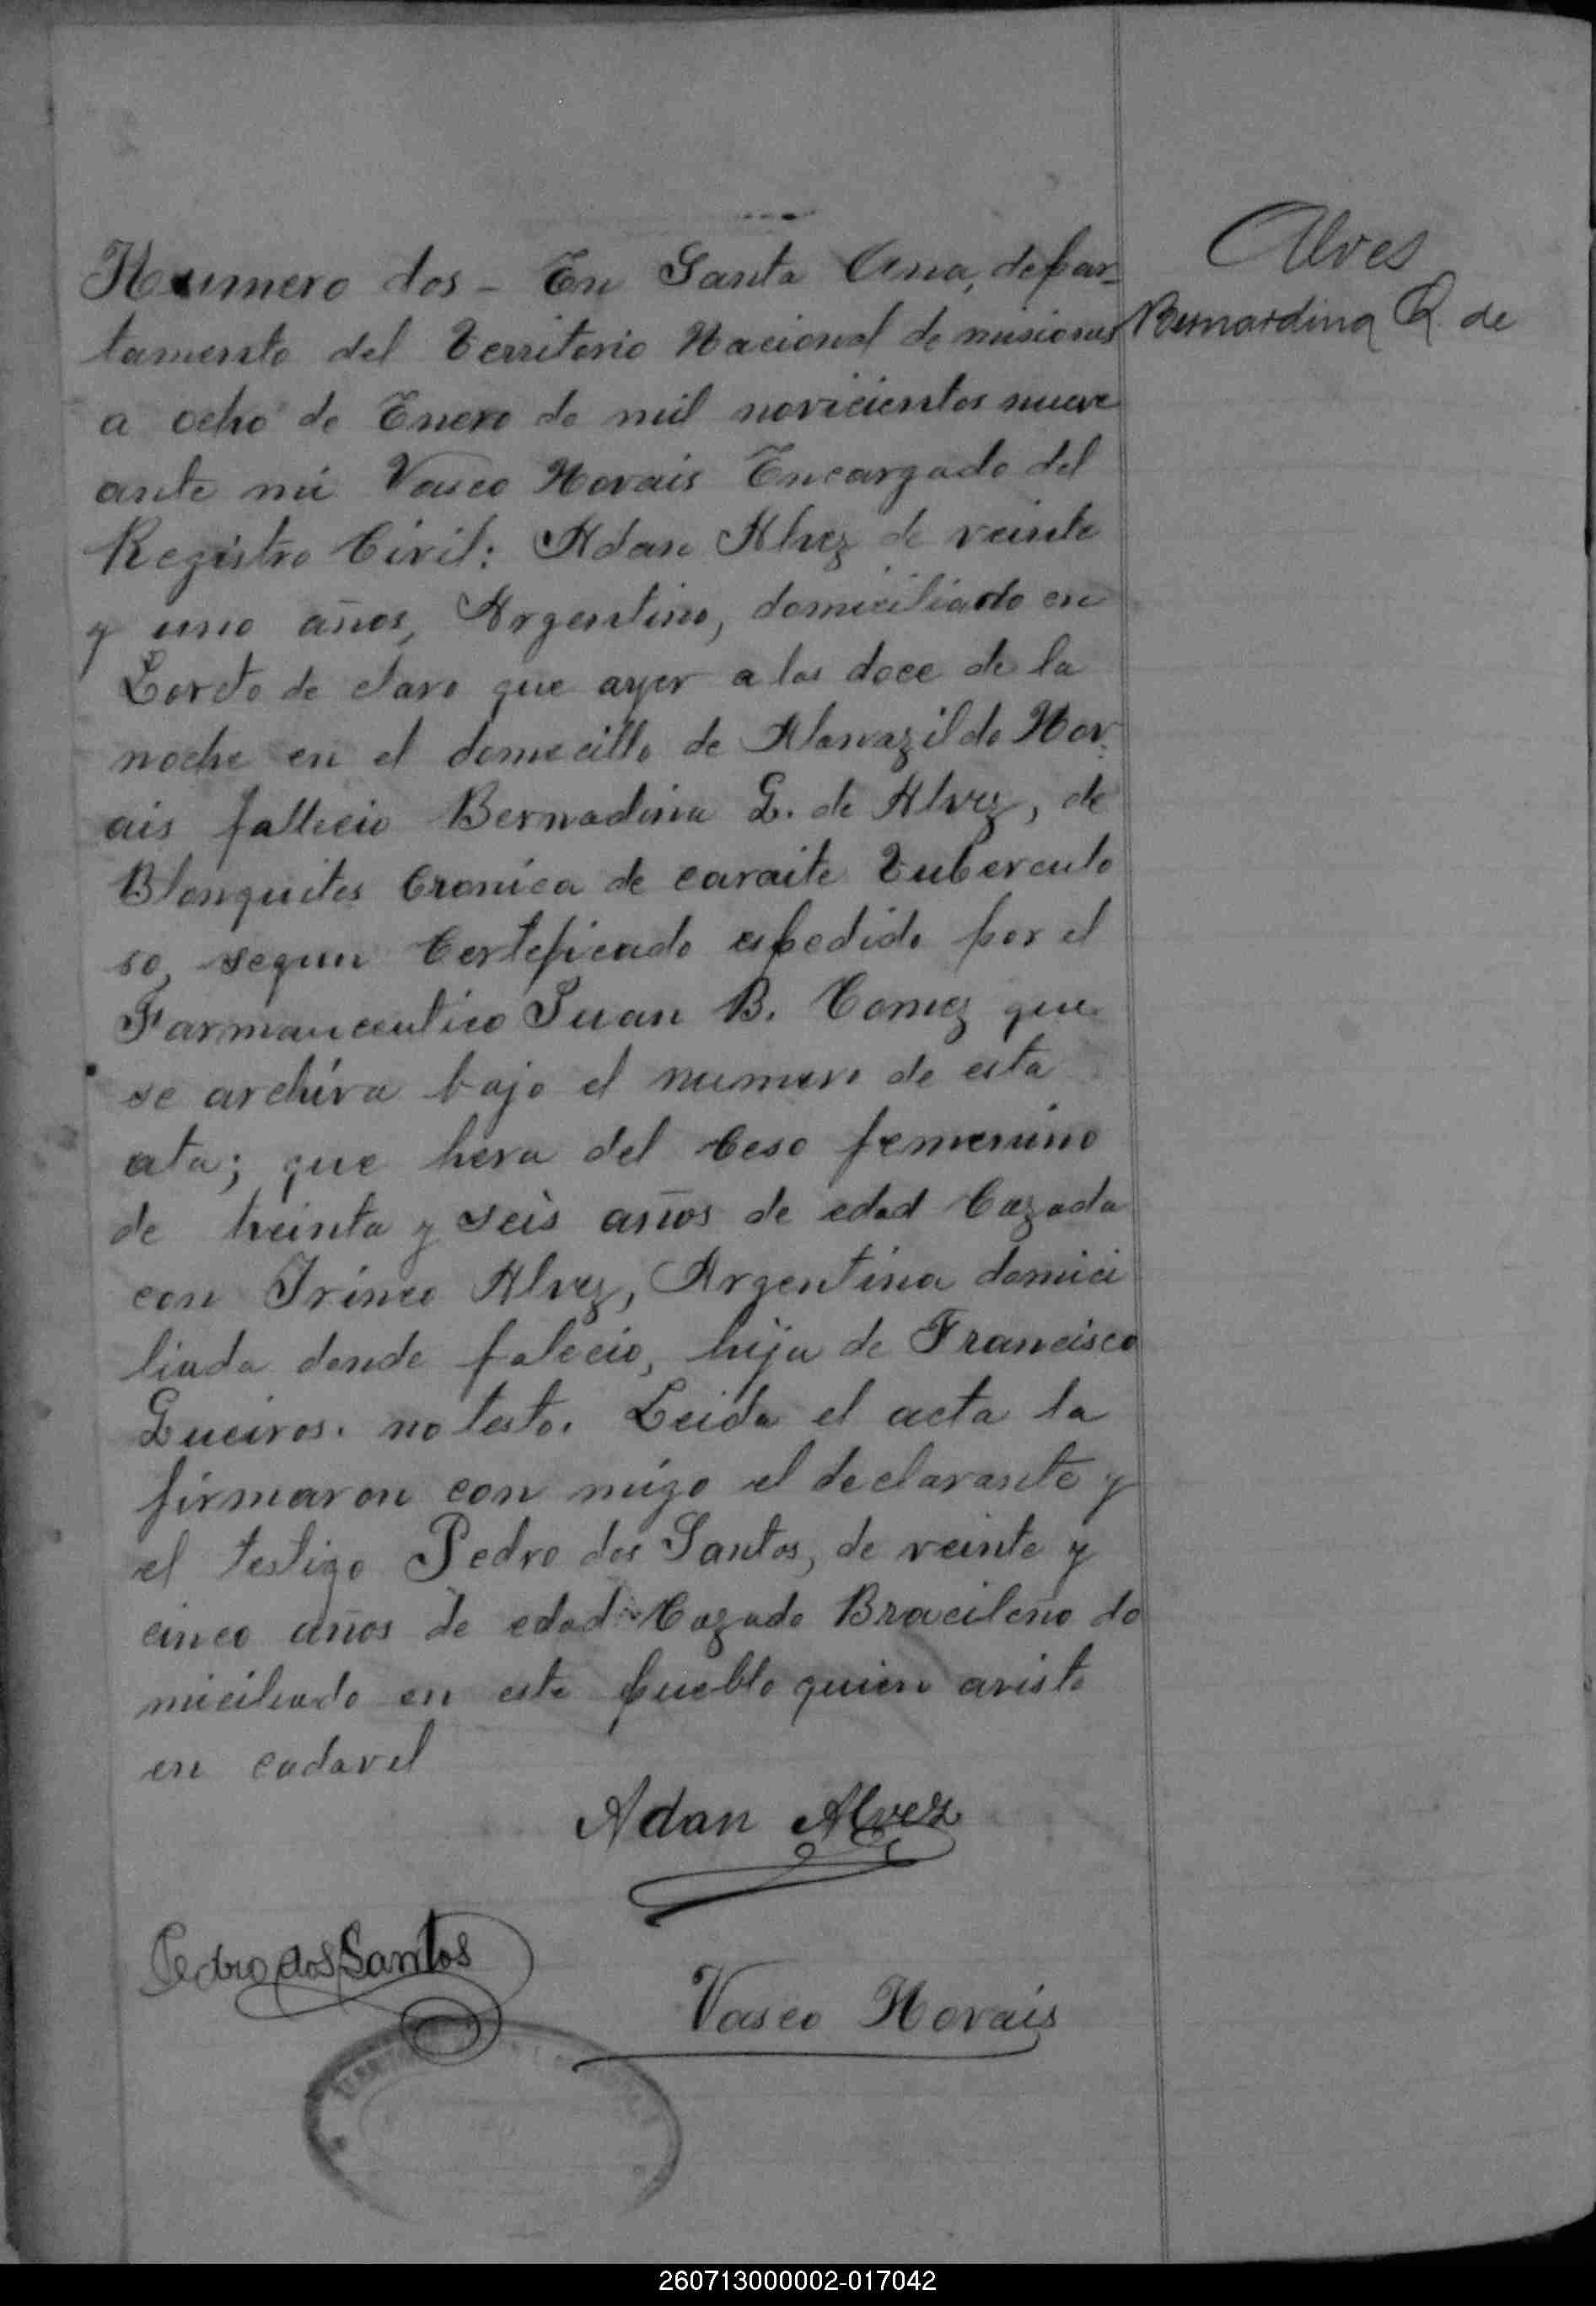 Numero dos - En Santa Ana, depar-
tamento del Territorio Nacional de misiones
a ocho de Enero de mil novicientos nueve
ante mi Vasco Novais Encargado del
Registro Civil: Adan Alvez de veinte
y uno años, Argentino, domiciliado en
Loreto de claro que ayer a las doce de la
noche en el domecillo de Alamazildo Nov
ais fallecio Bernadina G. de Alvez, de
Blonquites Cronica de caraite Tuberculo
so, segun Certeficado espedido por el
Farmanceutico Juan B. Comez que
se archiva bajo el numero de esta
ata; que hera del Ceso femenino
de treinta y seis años de edad Cazada
con Irineo Alvez, Argentina domici
liada donde falecio, hija de Francisco
Gueiros. no testo. Leida el acta la
firmaron con migo el declarante y
el testigo Pedro dos Santos, de veinte y
cinco años de edad Cazado Bracileño do
miciliado en este pueblo quien avisto
en cadavel
Adan Alvez
Pedro dos Santos
Vasco Novais
Alves
Bernardina Q. de
260713000002-017042